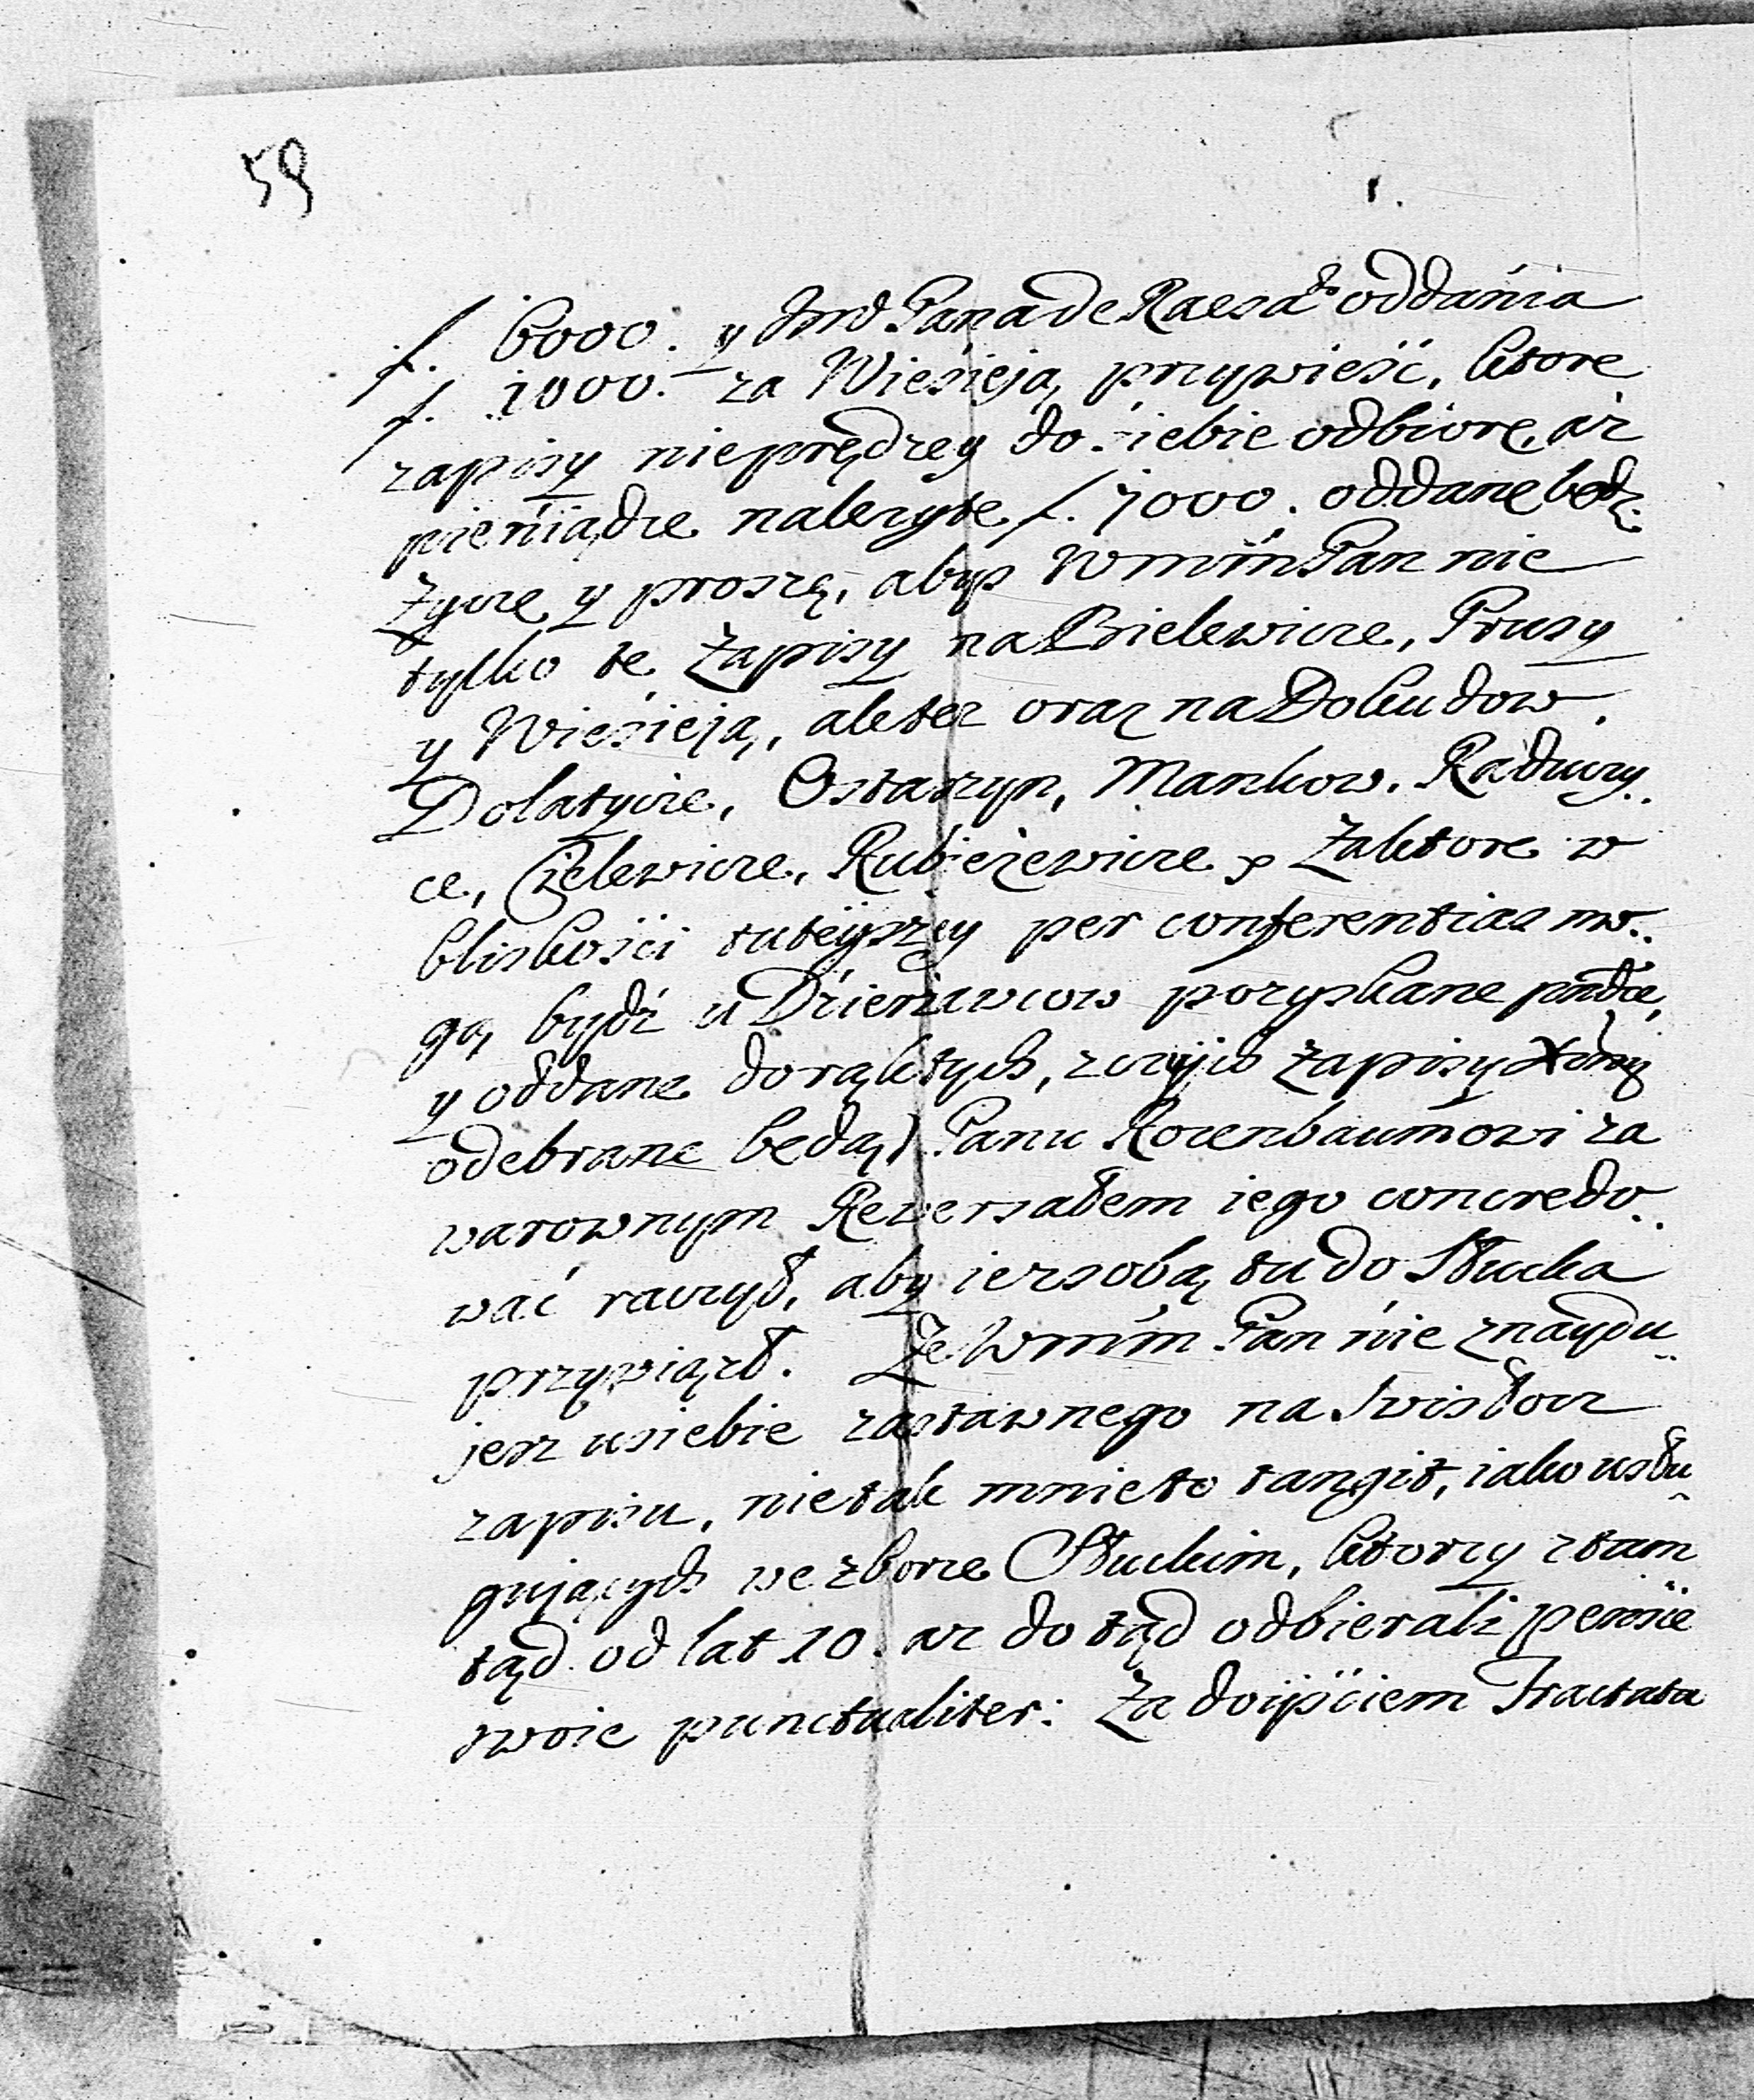 59
f. 6000. y Jmć Pana de Raesa do oddania
f. 1000. za Wiesieją, przywieść, ktore
zapisy nieprędzey do siebie odbiorę, aż
pieniądze należyte f. 7000. oddane będą.
Zyczę y proszę, abyś WmmPan nie
tylko te zapisy na Bielewicze, Prusy
y Wiesieją, ale też oraz na Dokudow,
Dolatycze, Ostaszyn, Mankow, Radczy..
ce, Cielewicze, Rubieżewicze, za ktore w
bliskości tuteyszey per conferentias mo..
gą bydź u Dzierżawcow pozyskane pndze,
y oddane do rąk tych, z czyich zapisy
odebrane będą) Panu Rozenbaumowi za
warownym Rewersałem iego concredo..
wać raczył, aby ie z sobą tu do Słucka
przywiązł. Że Wmm Pan nie znaydu..
jesz u siebie zastawnego na Swisłocz
zapisu, nie tak mnie to tangit, iako usłu
gujących we zborze Słuckim, ktorzy z tam
tąd od lat 10. aż do tąd odbierali pensie
swoie punctualiter: Za doyściem Tractatu